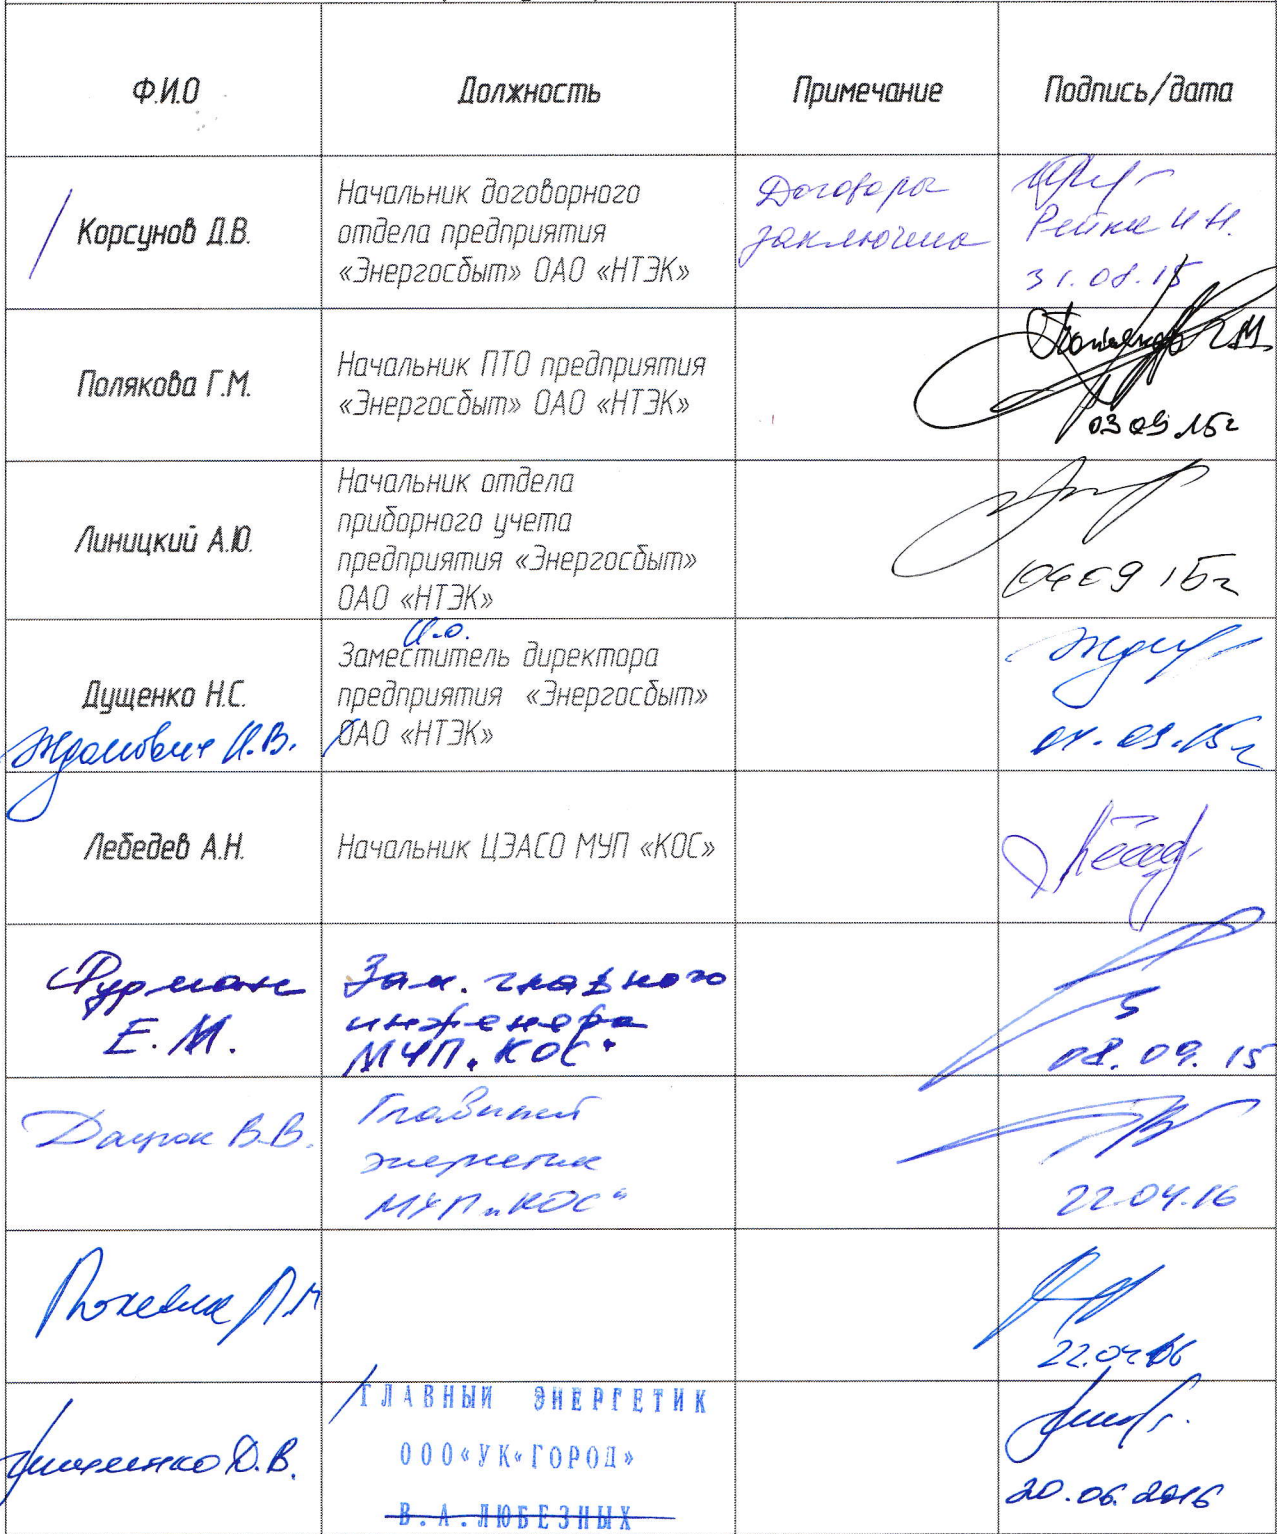 Ф.И.О
Должность
Примечание
Подпись/дата
Корсунов Д.В.
Начальник договорного
отдела предприятия
«Энергосбыт» ОАО «НТЭК»
Договоры
заключено
31.08.15
Полякова Г.М.
Начальник ПТО предприятия
«Энергосбыт» ОАО «НТЭК»
03.09.15г
Линицкий А.Ю.
Начальник отдела
приборного учета
предприятия «Энергосбыт»
ОАО «НТЭК»
04.09 15г
Дущенко Н.С.
Жданович И.В.
И.о.
Заместитель директора
предприятия «Энергосбыт»
ОАО «НТЭК»
Лебедев А.Н.
Начальник ЦЭАСО МУП «КОС»
Фурман
Е.М.
Зам. главного
инженера
МУП "КОС"
08.09.15
Дацюк В.В.
Главный
энергетик
МУП "КОС"
22.04.16
Д.В.
ГЛАВНЫЙ ЭНЕРГЕТИК
ООО«УК«ГОРОД»
В.А.ЛЮБЕЗНЫХ
20.06.2016